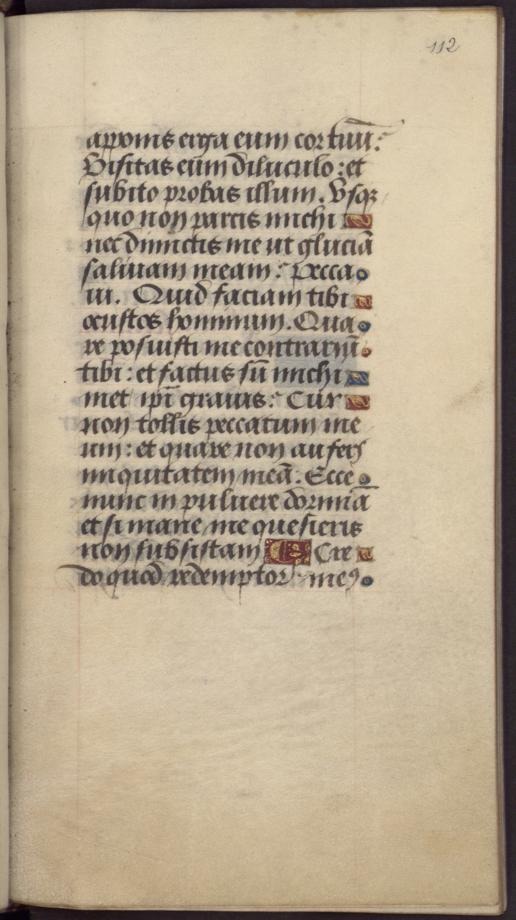 112
apponis erga eum cor tuū:
Visitas eum diluculo: et
subito probas illum. Vsqꝫ
quo non parcis michi
nec dimictis me ut gluciā
saliuam meam: Pecca
ui. Quid faciam tibi
o custos hominum. Qua
re posuisti me contrariū
tibi: et factus sū michi
met ipī grauis: Cur
non tollis peccatum me
um: et quare non aufers
iniquitatem meā: Ecce
nunc in puluere dormiā
et si mane me quesieris
non subsistam Cre
do quod redemptor meꝰ